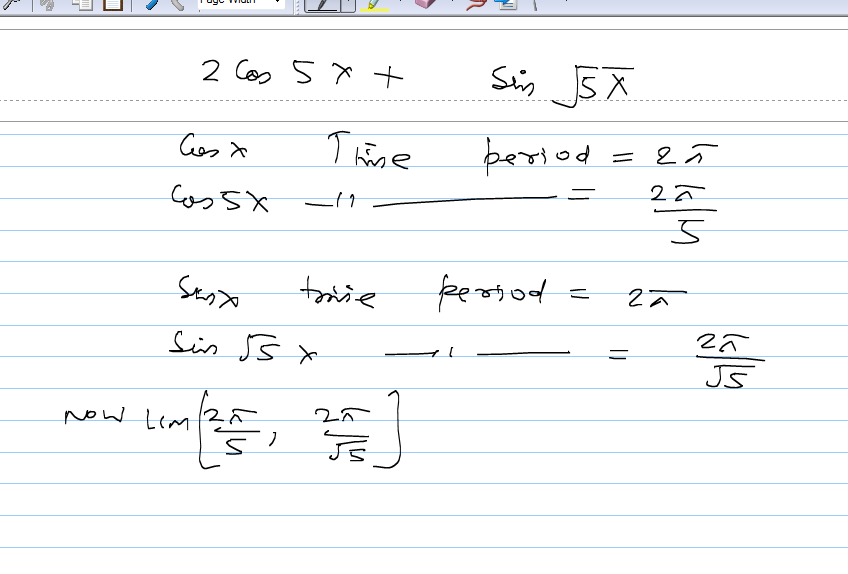 Page Width
2 Cos 5 x + Sin √5x
Cos x Time period = 2π
Cos 5x —11——— = 2π/5
Sin x time period = 2π
Sin √5 x —11——— = 2π/√5
NOW LCM [2π/5, 2π/√5]